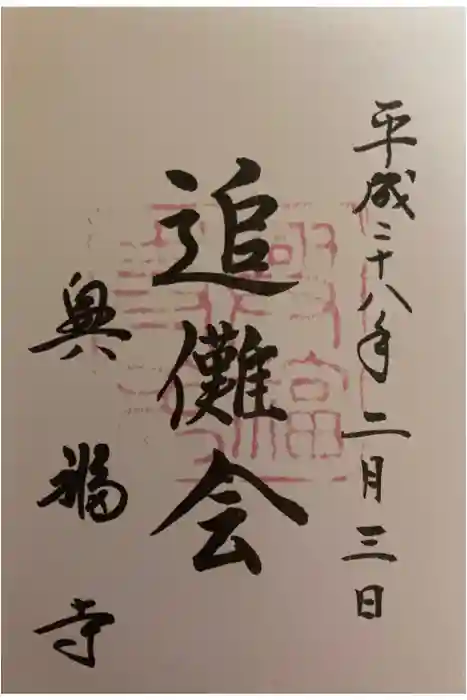 平成二十八年二月三日
追儺会
興福寺